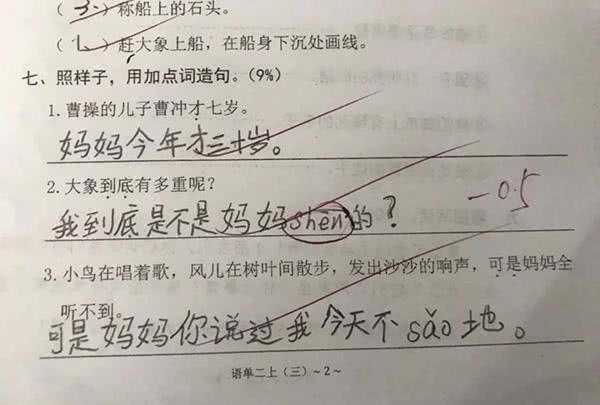 （3）称船上的石头。
（1）赶大象上船，在船身下沉处画线。
七、照样子，用加点词造句。(9%)
1.曹操的儿子曹冲才七岁。
妈妈今年才三十岁。
2.大象到底有多重呢？
-0.5
我到底是不是妈妈shēn的？
3.小鸟在唱着歌，风儿在树叶间散步，发出沙沙的响声，可是妈妈全
听不到。
可是妈妈你说过我今天不sǎo地。
语单二上（三）~2~